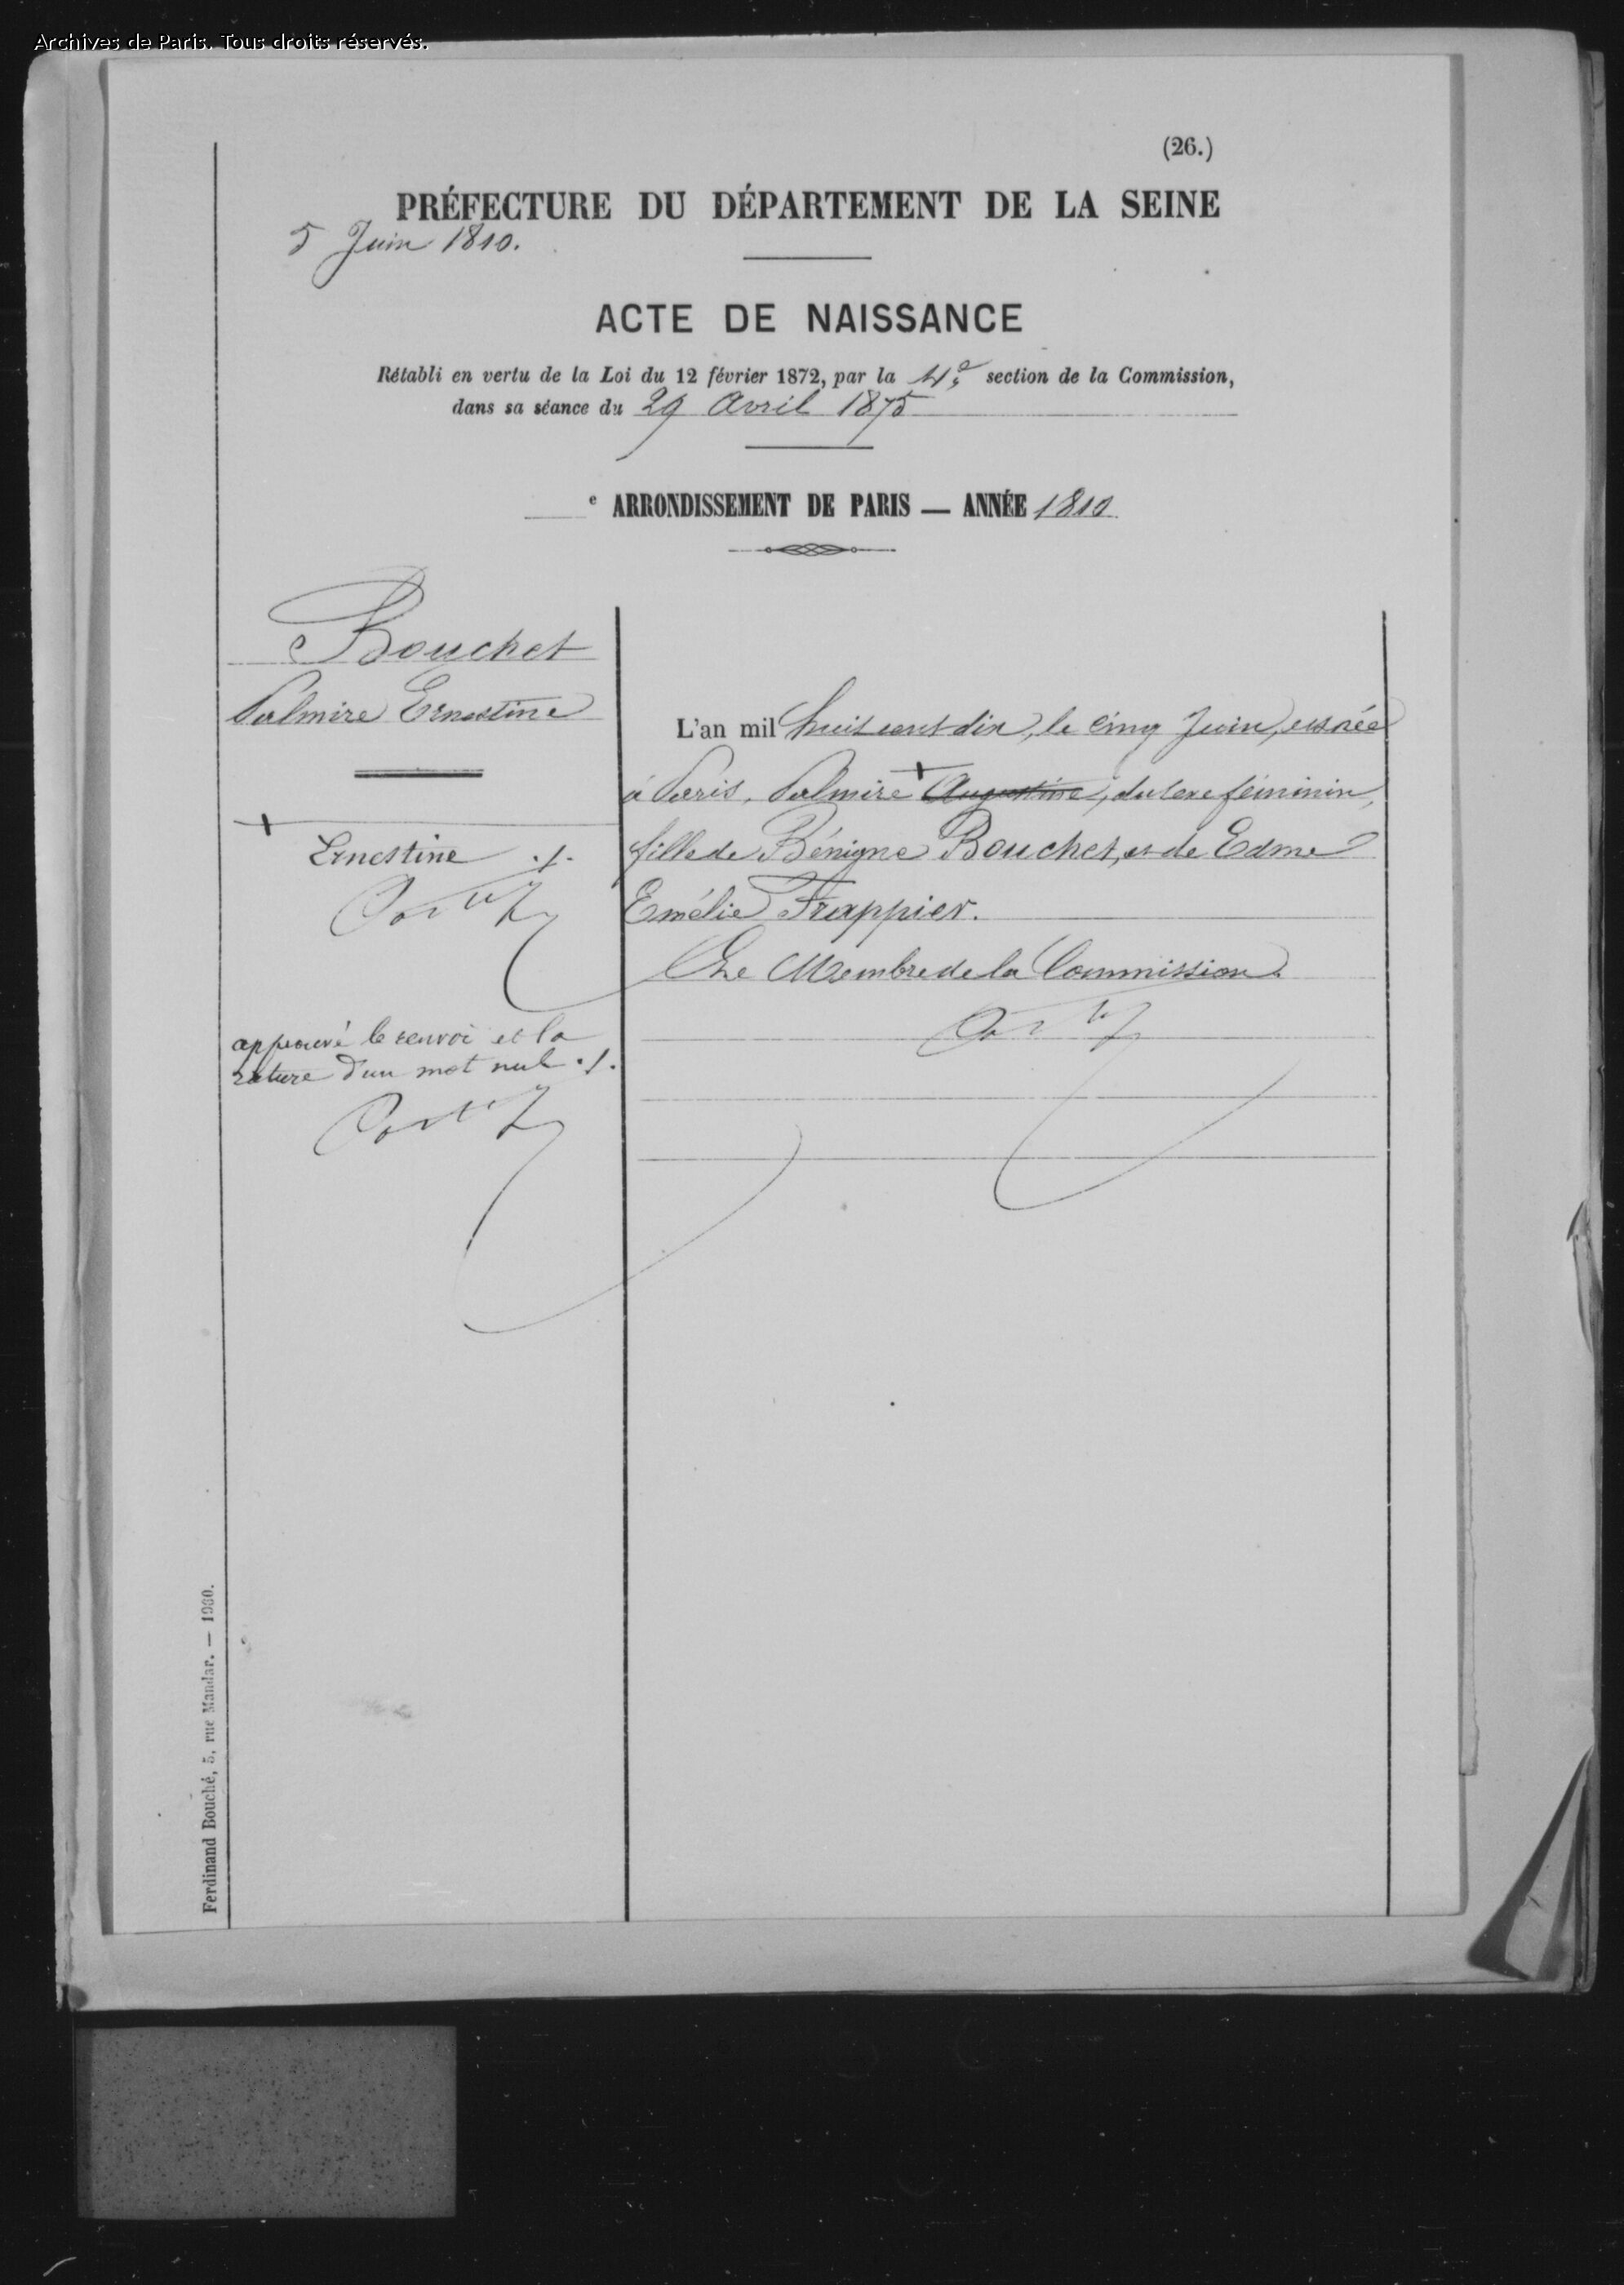 Archives de Paris. Tous droits réservés.
(26.)
PRÉFECTURE DU DÉPARTEMENT DE LA SEINE
5 Juin 1810.
ACTE DE NAISSANCE
Rétabli en vertu de la Loi du 12 février 1872, par la 4e section de la Commission,
dans sa séance du 29 Avril 1875
e ARRONDISSEMENT DE PARIS — ANNÉE 1810
Bouchet
Palmire Ernestine
+
Ernestine ./.
approuvé le renvoi et la
rature d'un mot nul ./.
L'an mil huit cent dix, le cinq Juin, est née
à Paris, Palmire + Augustine, du sexe féminin,
fille de Bénigne Bouchet, et de Edme
Emélie Frappier.
Le Membre de la Commission
Ferdinand Bouché, 5, rue Mandar. — 1900.